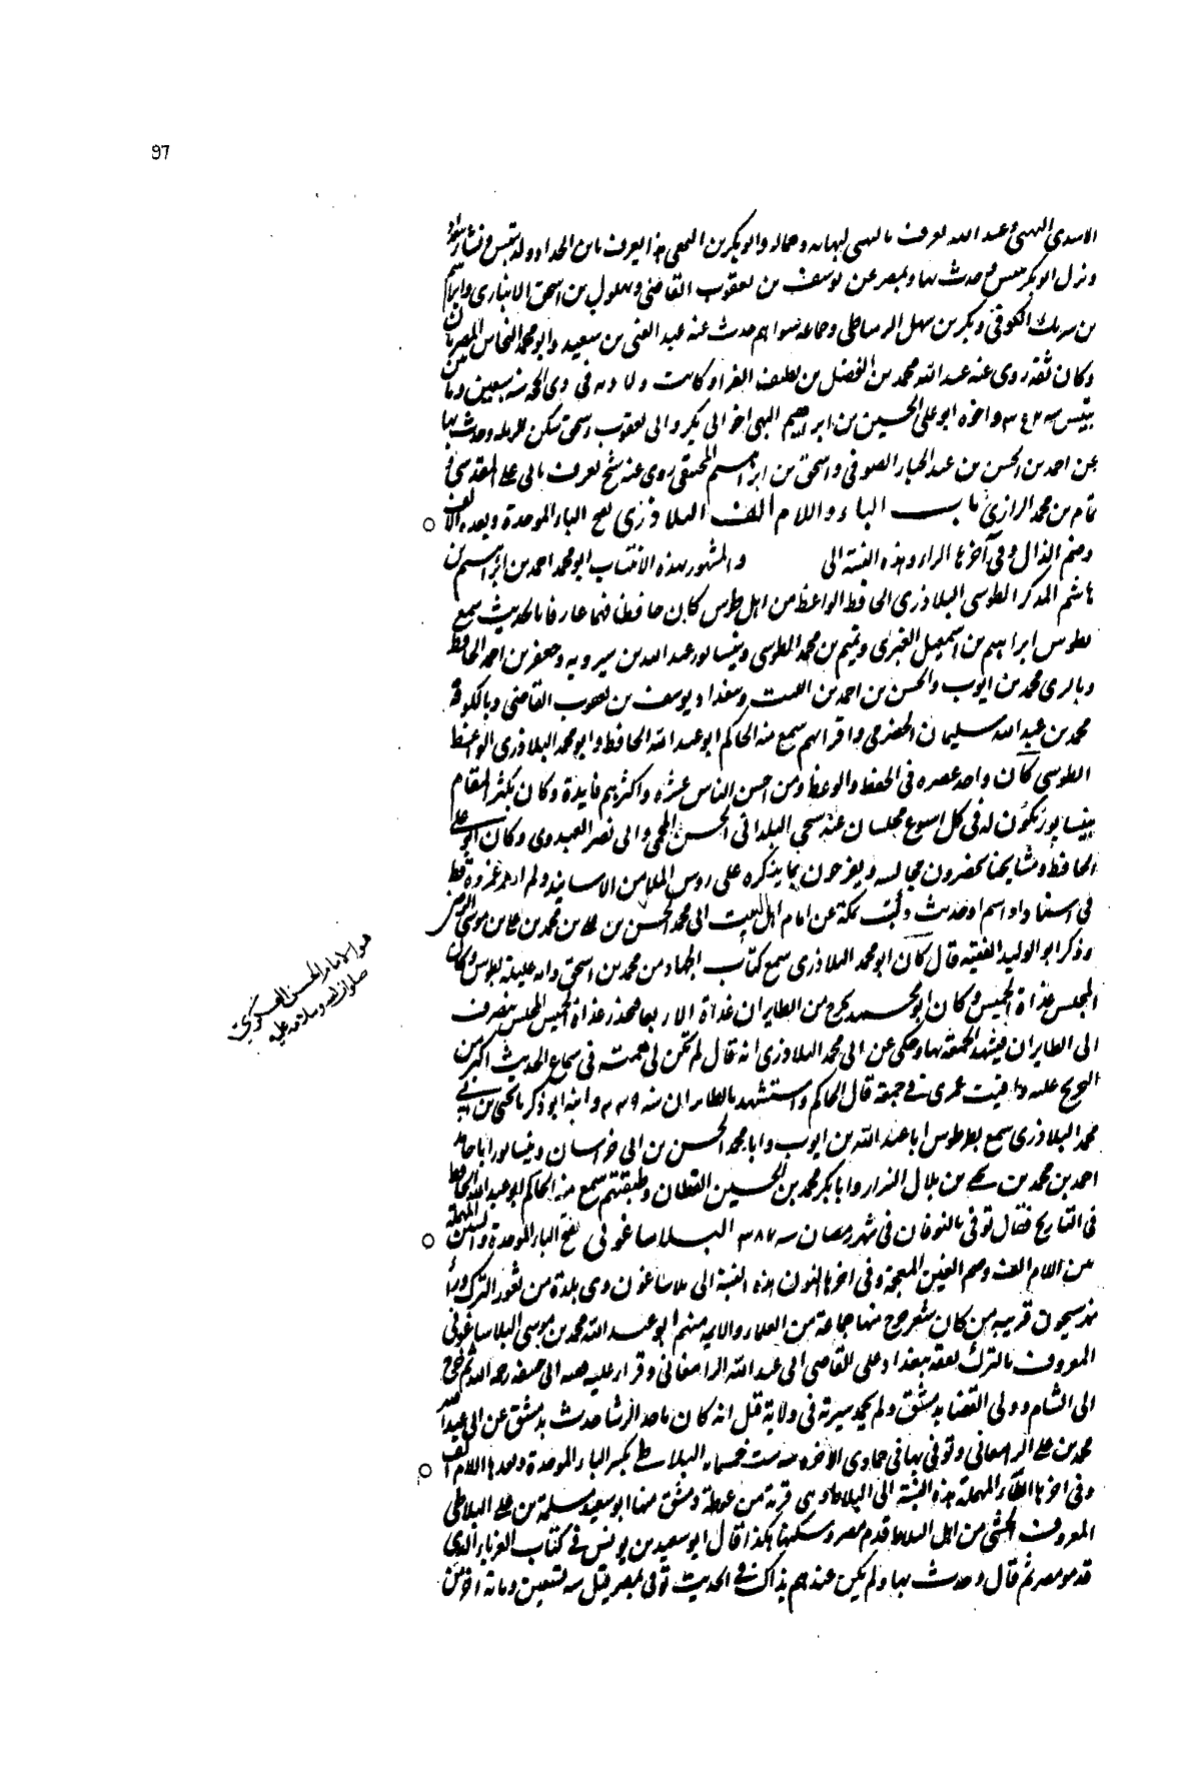 97
الاسدي البهي وعبد الله يعرف بالبهي لبهائه وجماله وابو بكر بن البهي هذا يعرف بابن الحداد ولد بتنيس ونشأ ببغداد
ونزل ابو بكر تنيس وحدث بها وبمصر عن يوسف بن يعقوب القاضي وبهلول بن اسحق الانباري وابراهيم
بن شريك الكوفي وبكر بن سهل الدمياطي وجماعة سواهم حدث عنه عبد الغني بن سعيد وابو محمد النحاس المصريان
وكان ثقة روى عنه عبد الله محمد بن الفضل بن نظيف الفراء وكانت ولادته في ذي الحجة سنة سبعين ومائتين
بتنيس سنة واخوه ابو على الحسين بن ابراهيم البهي اخو ابي بكر وابي يعقوب اسحق سكن الرملة وحدث بها
عن احمد بن الحسن بن عبد الجبار الصوفي واسحق بن ابراهيم المنجنيقي روى عنه شيخ يعرف بابي علي المقدسي
تمام بن محمد الرازي باب الباء واللام الف البلاذري بفتح الباء الموحدة وبعدها اللام الف
وضم الذال وفي آخرها الراء وهذه النسبة الى والمشهور بهذه الانتساب ابو محمد احمد بن ابراهيم بن
هاشم المذكر الطوسي البلاذري الحافظ الواعظ من اهل طوس كان حافظا فهما عارفا بالحديث سمع
بطوس ابراهيم بن اسمعيل العنبري وتميم بن محمد الطوسي وبنيسابور عبد الله بن شيرويه وجعفر بن احمد الحافظ
وبالري محمد بن ايوب والحسن بن احمد بن الليث وببغداد يوسف بن يعقوب القاضي وبالكوفة
محمد بن عبد الله سليمان الحضرمي واقرانهم سمع منه الحاكم ابو عبد الله الحافظ وابو محمد البلاذري الواعظ
الطوسي كان واحد عصره في الحفظ والوعظ ومن احسن الناس عشرة واكثرهم فايدة وكان يكثر المقام
بنيسابور يكون له في كل اسبوع مجلسان عند شيخي البلد ابي الحسن المحمي وابي نصر العبدوي وكان ابو علي
الحافظ ومشايخنا يحضرون مجالسه ويفرحون بما يذكره على رؤس الملا من الاسانيد ولم ارهم غمزوه قط
في اسناد او اسم او حديث وكتب بمكة عن امام اهل البيت ابي محمد الحسن بن علي بن محمد بن علي بن موسى الرضا
وذكر ابو الوليد الفقيه قال كان ابو محمد البلاذري سمع كتاب الجهاد من محمد بن اسحق وامه عليلة بطوس وكان
المجلس غداة الخميس وكان ابو محمد يخرج من الطابران غداة الاربعا فيحضر غداة الخميس المجلس ينصرف
الى الطابران فيشهد الجمعة بها وحكى عن ابي محمد البلاذري انه قال لم تكن لي همت في سماع الحديث اكبر من
التخريج عليه وافنيت عمري في جمعه قال الحاكم واستشهد بالطابران سنة ٣٣٩ وابنه ابو زكريا يحيى بن ابي
محمد البلاذري سمع بطوس ابا عبد الله بن ايوب وابا محمد الحسن بن ابي خراسان وبنيسابور ابا حامد
احمد بن محمد بن يحيى بن بلال البزاز وابا بكر محمد بن الحسين القطان وطبقتهم سمع منه الحاكم ابو عبد الله الحافظ
في التاريخ فقال توفي بالنوقان في شهر رمضان سنة ٣٨٧ البلاساغوني بفتح الباء الموحدة والسين المهملة
بين اللام الف وضم الغين المعجمة وفي اخرها النون هذه النسبة الى بلاساغون وهي بلدة من ثغور الترك وراء
نهر سيحون قريبة من كاشغر خرج منها جماعة من العلماء والائمة منهم ابو عبد الله محمد بن موسى البلاساغوني
المعروف بالترك تفقه ببغداد على القاضي ابي عبد الله الدامغاني وقرا عليه فقه ابي حنيفة رحمه الله ثم خرج
الى الشام وولي القضا بدمشق ولم يحمد سيرته في ولاية قيل انه كان ياخذ الرشا حدث بدمشق عن ابي عبد الله
محمد بن علي الدامغاني وتوفي بها في جمادى الاخره سنة ست خمسمائة البلاطي بكسر الباء الموحدة وبعدها اللام الف
وفي اخرها الطاء المهملة هذه النسبة الى البلاط وهي قرية من غوطة دمشق منها ابو سعيد مسلمة بن علي البلاطي
المعروف الخشني من اهل البلاط قدم مصر وسكنها هكذا قال ابو سعيد بن يونس في كتاب الغرباء الذي
قدموا مصر ثم قال وحدث بها ولم يكن عندهم بذاك في الحديث توفي بمصر قبل سنة تسعين ومائة اخر من
هو الامام الحسن العسكري
صلوات الله وسلامه عليه